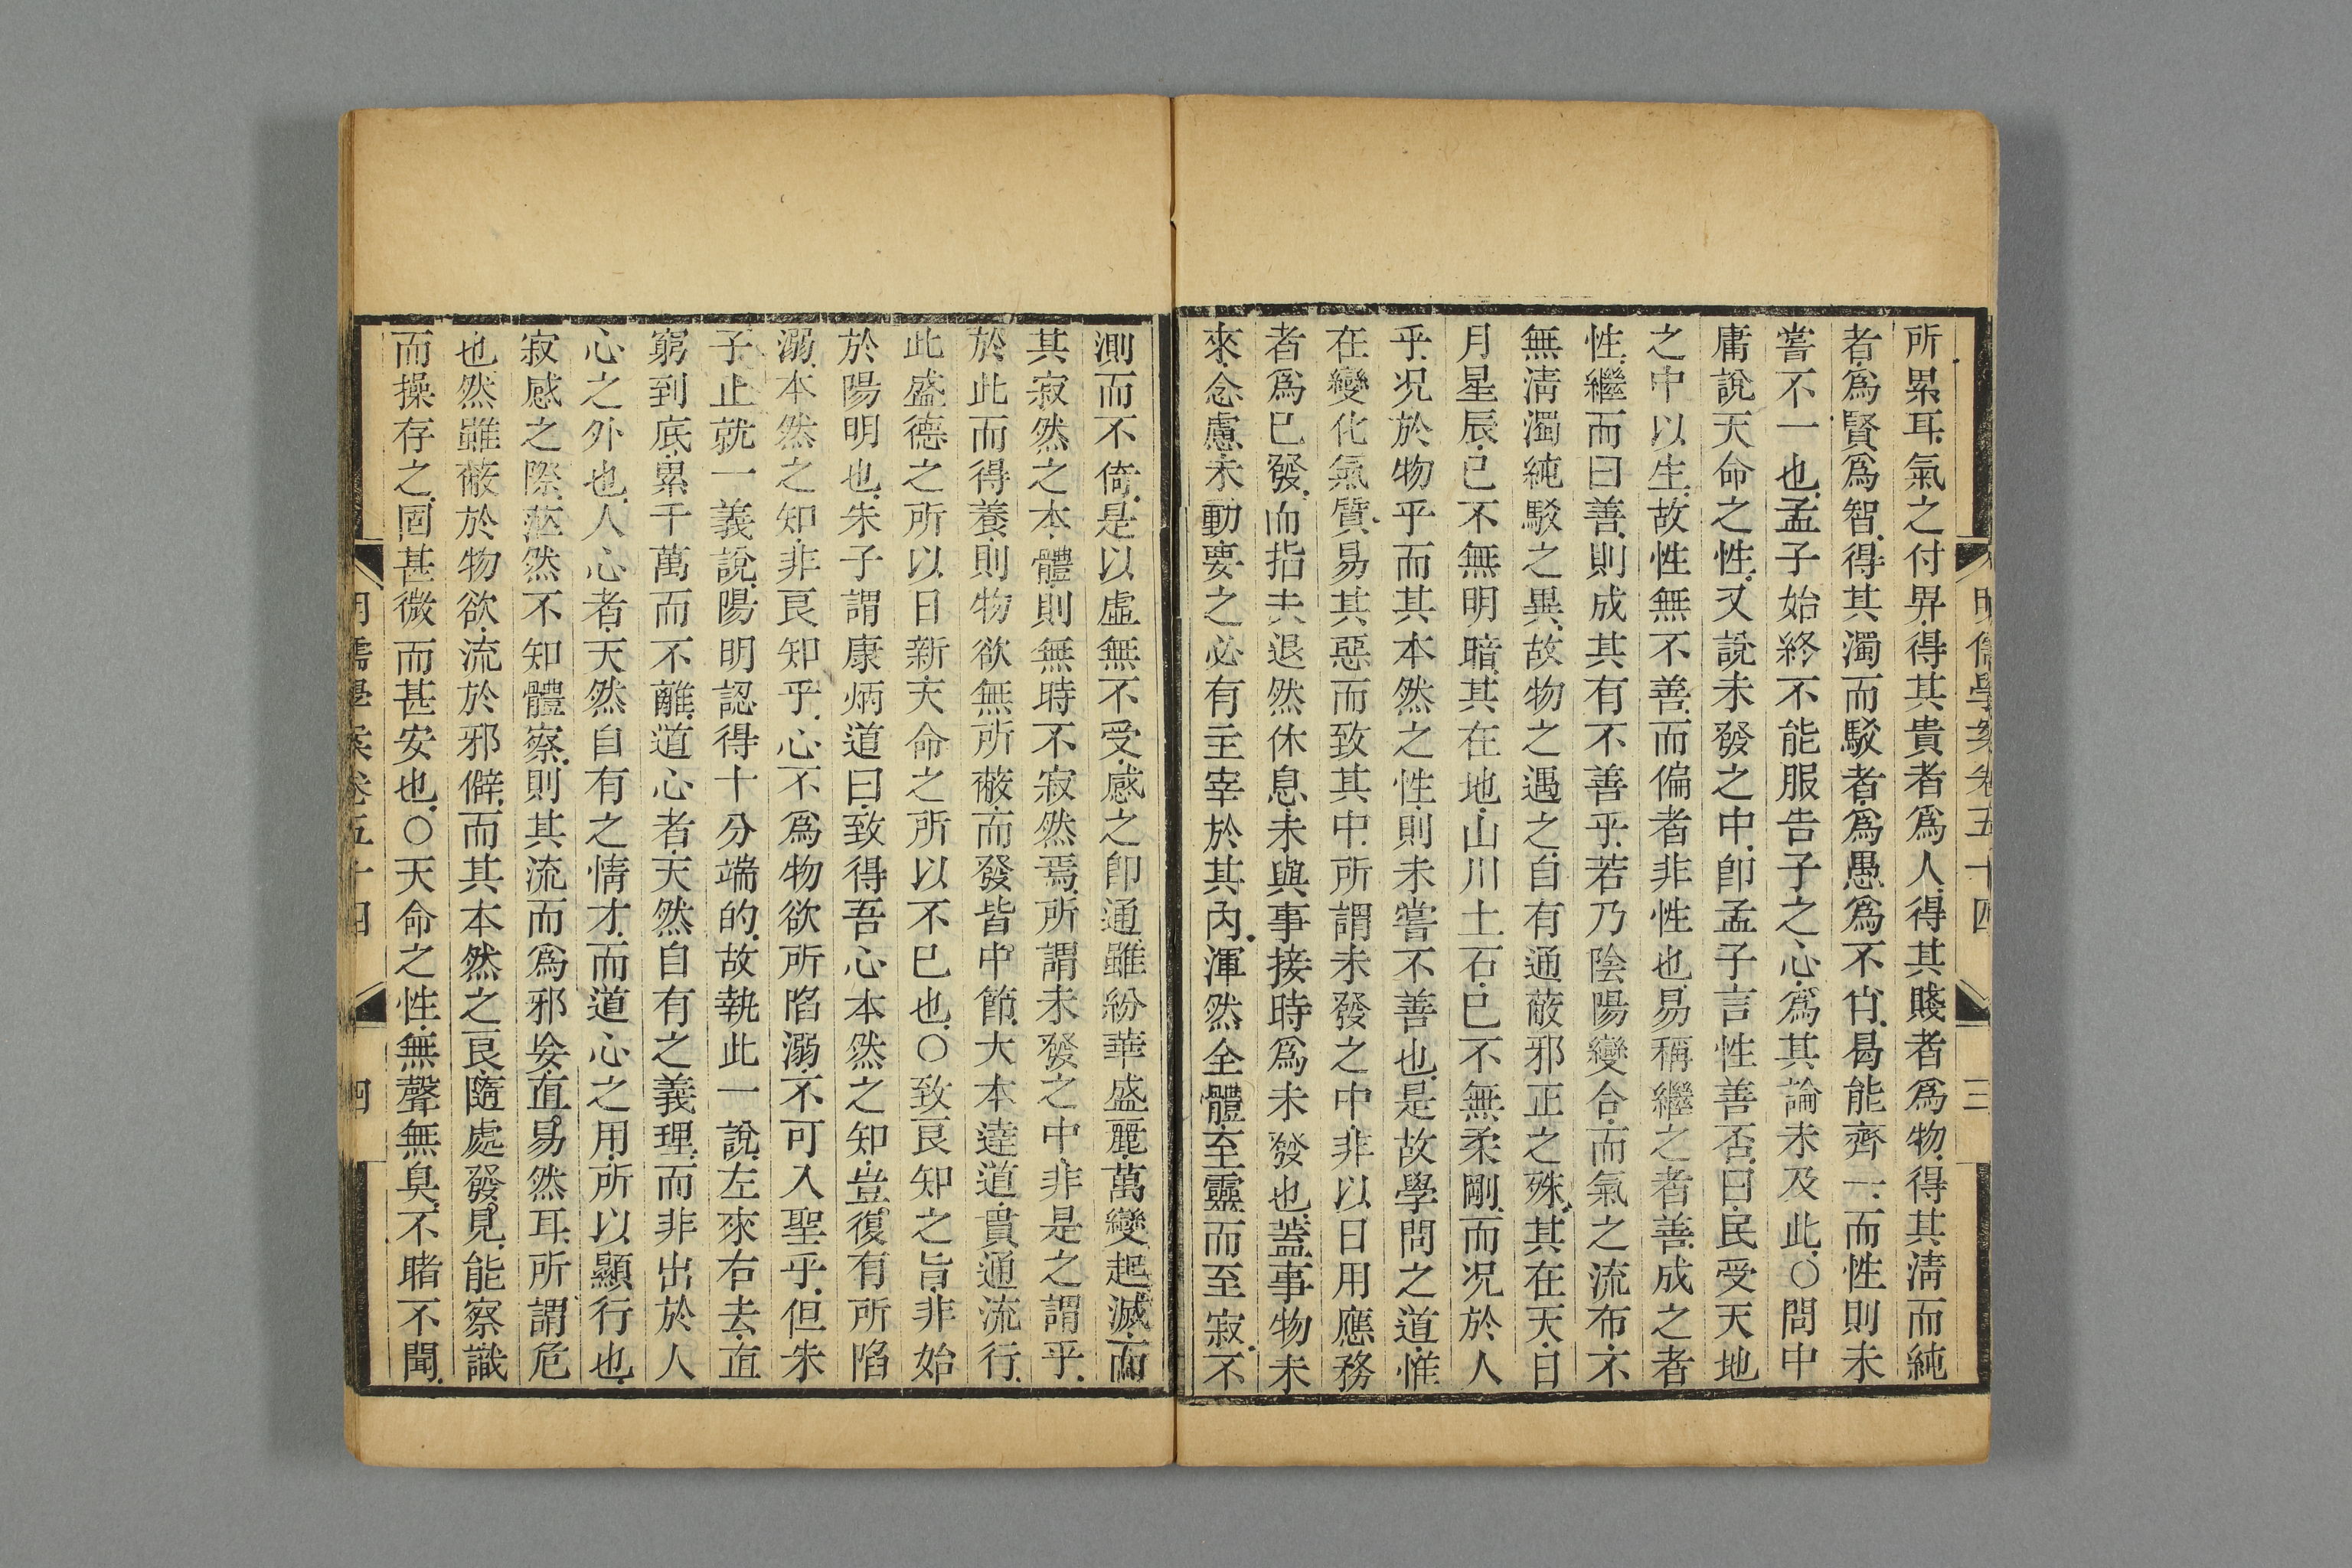 明儒學案卷五十四 三
所累耳氣之付畀得其貴者爲人得其賤者爲物得其淸而純
者爲賢爲智得其濁而駁者爲愚爲不肖曷能齊一而性則未
嘗不一也孟子始終不能服告子之心爲其論未及此〇問中
庸說天命之性又說未發之中卽孟子言性善否曰民受天地
之中以生故性無不善而偏者非性也易稱繼之者善成之者
性繼而曰善則成其有不善乎若乃陰陽變合而氣之流布不
無淸濁純駁之異故物之遇之自有通蔽邪正之殊其在天日
月星辰已不無明暗其在地山川土石已不無柔剛而况於人
乎况於物乎而其本然之性則未嘗不善也是故學問之道惟
在變化氣質易其惡而致其中所謂未發之中非以日用應務
者爲已發而指夫退然休息未與事接時爲未發也蓋事物未
來念慮未動要之必有主宰於其內渾然全體至靈而至寂不
測而不倚是以虛無不受感之卽通雖紛華盛麗萬變起滅而
其寂然之本體則無時不寂然焉所謂未發之中非是之謂乎
於此而得養則物欲無所蔽而發皆中節大本達道貫通流行
此盛德之所以日新天命之所以不已也〇致良知之旨非始
於陽明也朱子謂康炳道曰致得吾心本然之知豈復有所陷
溺本然之知非良知乎心不爲物欲所陷溺不可入聖乎但朱
子止就一義說陽明認得十分端的故執此一說左來右去直
窮到底累千萬而不離道心者天然自有之義理而非出於人
心之外也人心者天然自有之情才而道心之用所以顯行也
寂感之際茫然不知體察則其流而爲邪妄直易然耳所謂危
也然雖蔽於物欲流於邪僻而其本然之良隨處發見能察識
而操存之固甚微而甚安也〇天命之性無聲無臭不睹不聞
明儒學案卷五十四 四